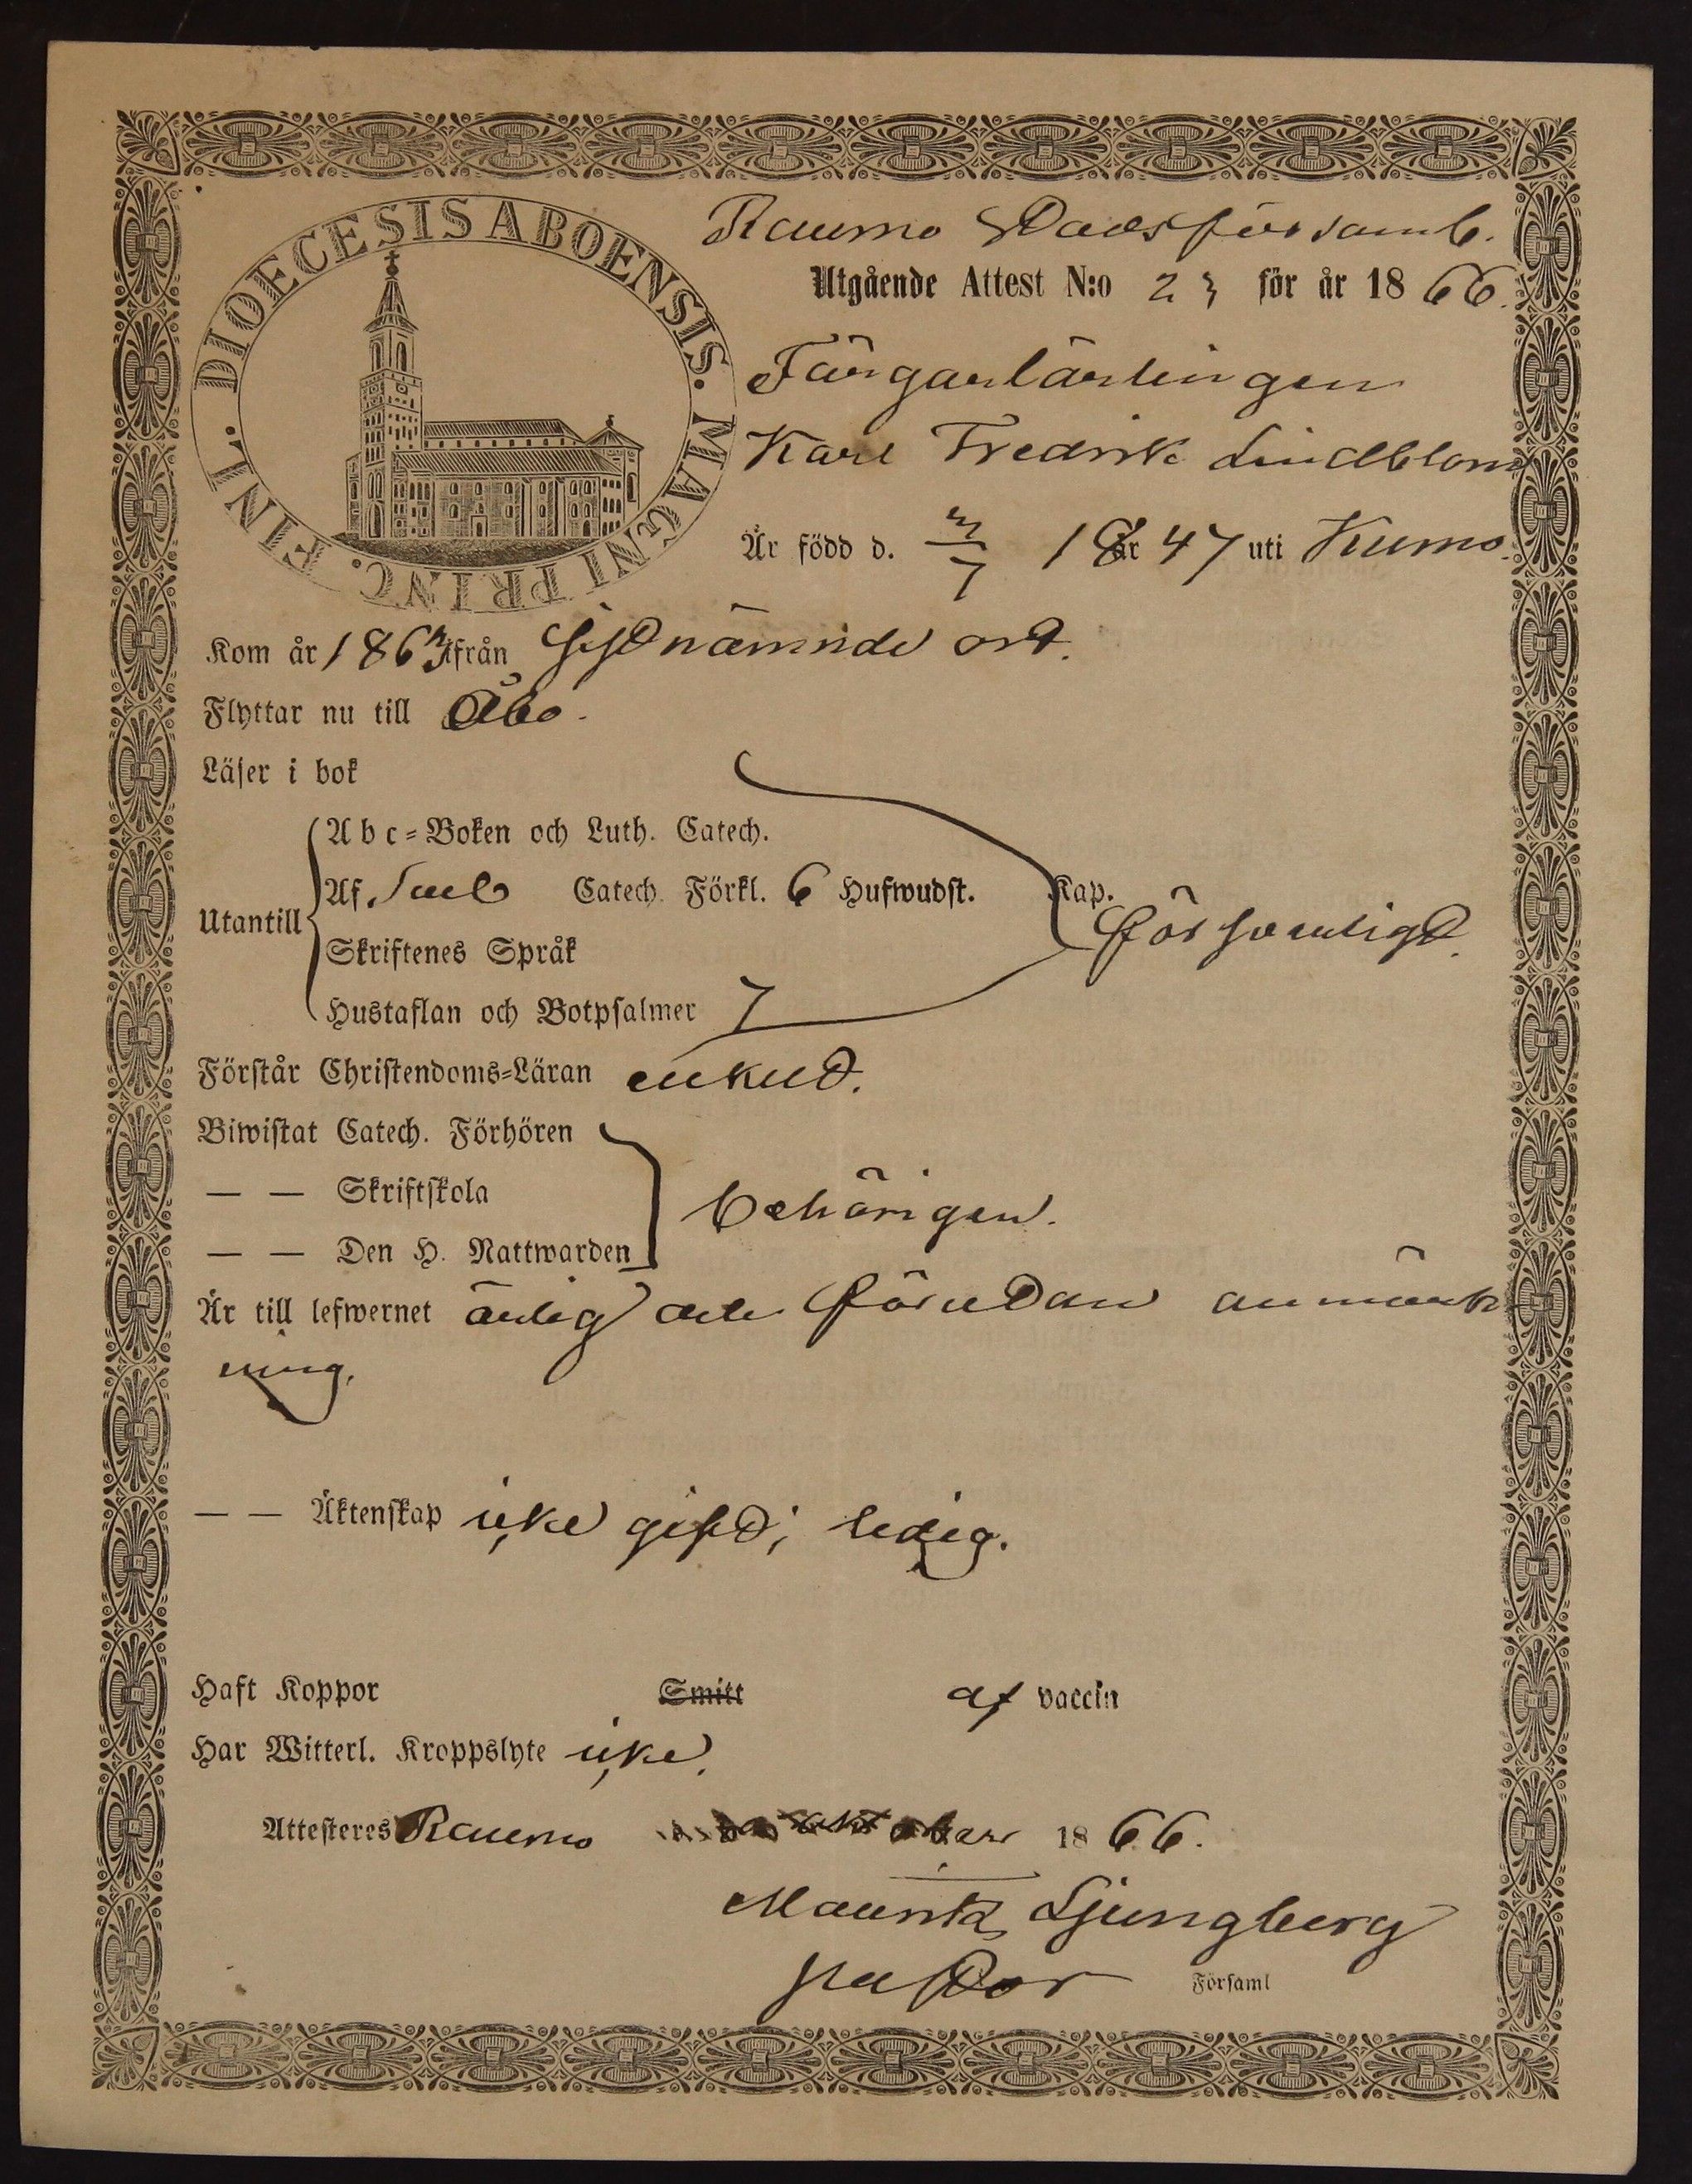 DIOECESIS ABOENSIS. MAGNI PRINC. FINL.
Raumo Stadsförsaml.
Utgående Attest N:o 23 för år 1866.
Färgarlärlingen
Karl Fredrik Lindblom
Är född d. 3/7 1847 uti Kumo.
Kom år 1863 ifrån sistnämnde ort.
Flyttar nu till Åbo.
Läser i bok
Abc-Boken och Luth. Catech.
Af Catech. Förkl. 6 Hufwudst. Kap.
Utantill försvarligt.
Skriftenes Språk
Hustaflan och Botpsalmer 7
Förstår Christendoms-Läran enkelt.
Biwistat Catech. Förhören
— — Skriftskola behörigen.
— — Den H. Nattwarden
Är till lefwernet ärlig och förutan anmärk
ning.
— — Äktenskap icke gift; ledig.
Haft Koppor Smitt af vaccin
Har Witterl. Kroppslyte icke.
Attesteres Raumo 1866.
Mauritz Ljungberg
pastor Församl